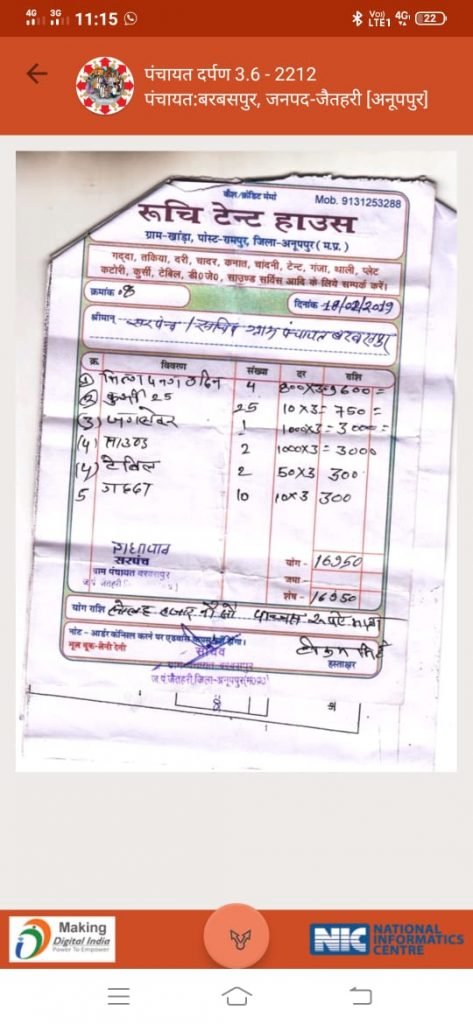 4G 3G 11:15 Vo) LTE1 4G 22
पंचायत दर्पण 3.6 - 2212
पंचायत:बरबसपुर, जनपद-जैतहरी [अनूपपुर]
कैश/क्रेडिट मेमो
Mob. 9131253288
रूचि टेन्ट हाउस
ग्राम-खांड़ा, पोस्ट-रामपुर, जिला-अनूपपुर (म.प्र.)
गद्दा, तकिया, दरी, चादर, कनात, चांदनी, टेन्ट, गंजा, थाली, प्लेट
कटोरी, कुर्सी, टेबिल, डी0जे0, साउण्ड सर्विस आदि के लिये सम्पर्क करें।
क्रमांक 8 दिनांक 18/02/2019
श्रीमान् सरपंच/सचिव ग्राम पंचायत बरबसपुर
क्र. विवरण संख्या दर राशि
(1) 4 800×3=9600=
(2) कुर्सी 25 25 10×3= 750=
(3) 1 1000×3=3000=
(4) साउण्ड 2 1000×3=3000
(4) टेबिल 2 50×3 300
5 गद्दा 10 10×3 300
सरपंच
ग्राम पंचायत बरबसपुर
योग - 16950
जमा -
शेष - 16950
योग राशि सोलह हजार नौ सौ पच्चास रूपये मात्र
नोट - आर्डर कैंसिल करने पर एडवांस होगा।
भूल चूक-लेनी देनी
सचिव
हस्ताक्षर
ग्राम पंचायत बरबसपुर
ज.पं.जैतहरी,जिला-अनूपपुर(म०प्र०)
Making
Digital India
Power To Empower
NIC NATIONAL
INFORMATICS
CENTRE